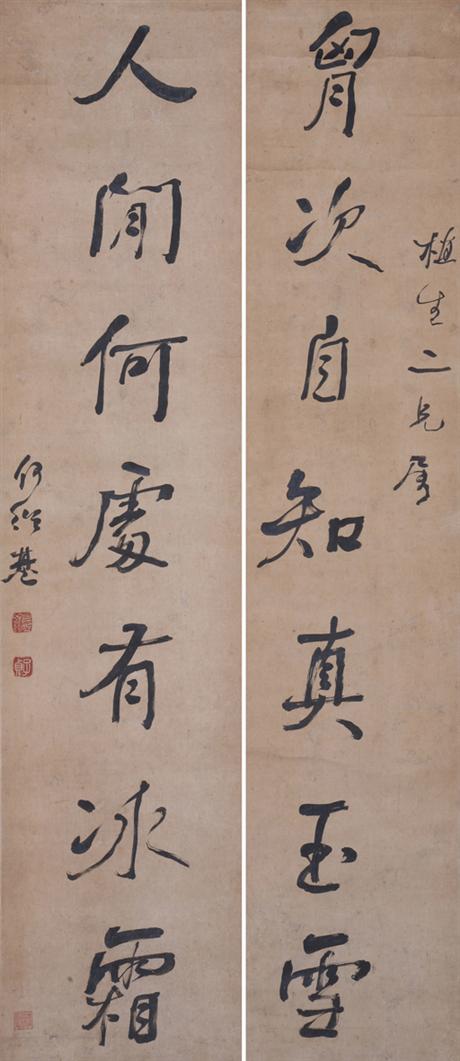 植生二兄属
胷次自知真玉雪
人閒何處有冰霜
何紹基